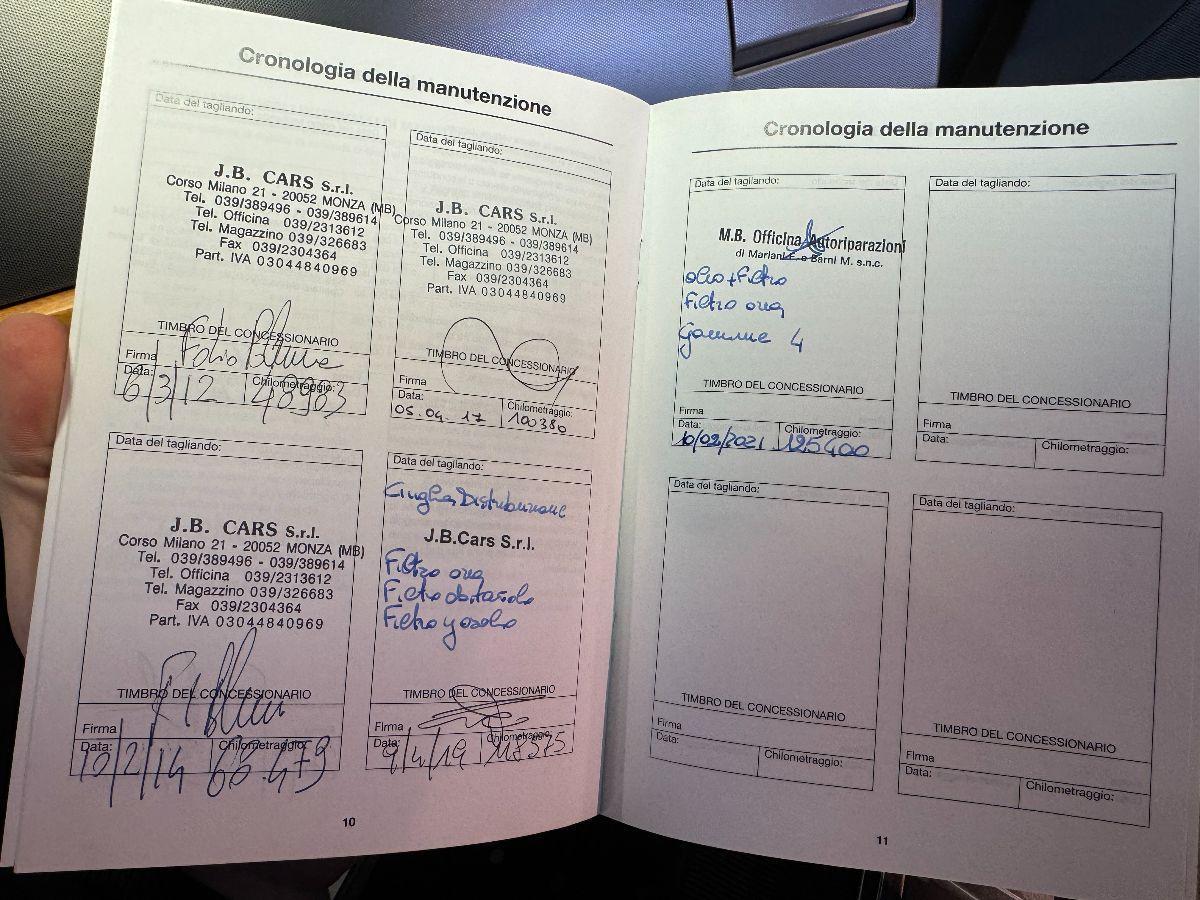 Cronologia della manutenzione
Data del tagliando:
J.B. CARS S.r.l.
Corso Milano 21 - 20052 MONZA (MB)
Tel. 039/389496 - 039/389614
Tel. Officina 039/2313612
Tel. Magazzino 039/326683
Fax 039/2304364
Part. IVA 03044840969
TIMBRO DEL CONCESSIONARIO
Firma
Data: Chilometraggio:
6/3/12 48983
Data del tagliando:
J.B. CARS S.r.l.
Corso Milano 21 - 20052 MONZA (MB)
Tel. 039/389496 - 039/389614
Tel. Officina 039/2313612
Tel. Magazzino 039/326683
Fax 039/2304364
Part. IVA 03044840969
TIMBRO DEL CONCESSIONARIO
Firma
Data: Chilometraggio:
05.04.17 100380
Data del tagliando:
J.B. CARS S.r.l.
Corso Milano 21 - 20052 MONZA (MB)
Tel. 039/389496 - 039/389614
Tel. Officina 039/2313612
Tel. Magazzino 039/326683
Fax 039/2304364
Part. IVA 03044840969
TIMBRO DEL CONCESSIONARIO
Firma
Data: Chilometraggio:
10/2/14
Data del tagliando:
Cinghia Distribuzione
J.B.Cars S.r.l.
Filtro aria
Filtro abitacolo
Filtro gasolio
TIMBRO DEL CONCESSIONARIO
Firma
Data: Chilometraggio:
9/4/19 118575
10
Cronologia della manutenzione
Data del tagliando:
M.B. Officina Autoriparazioni
di Mariani E. e Barni M. s.n.c.
olio+Filtro
Filtro aria
Gomme 4
TIMBRO DEL CONCESSIONARIO
Firma
Data: Chilometraggio:
10/02/2021 125400
Data del tagliando:
TIMBRO DEL CONCESSIONARIO
Firma
Data: Chilometraggio:
Data del tagliando:
TIMBRO DEL CONCESSIONARIO
Firma
Data: Chilometraggio:
Data del tagliando:
TIMBRO DEL CONCESSIONARIO
Firma
Data: Chilometraggio:
11